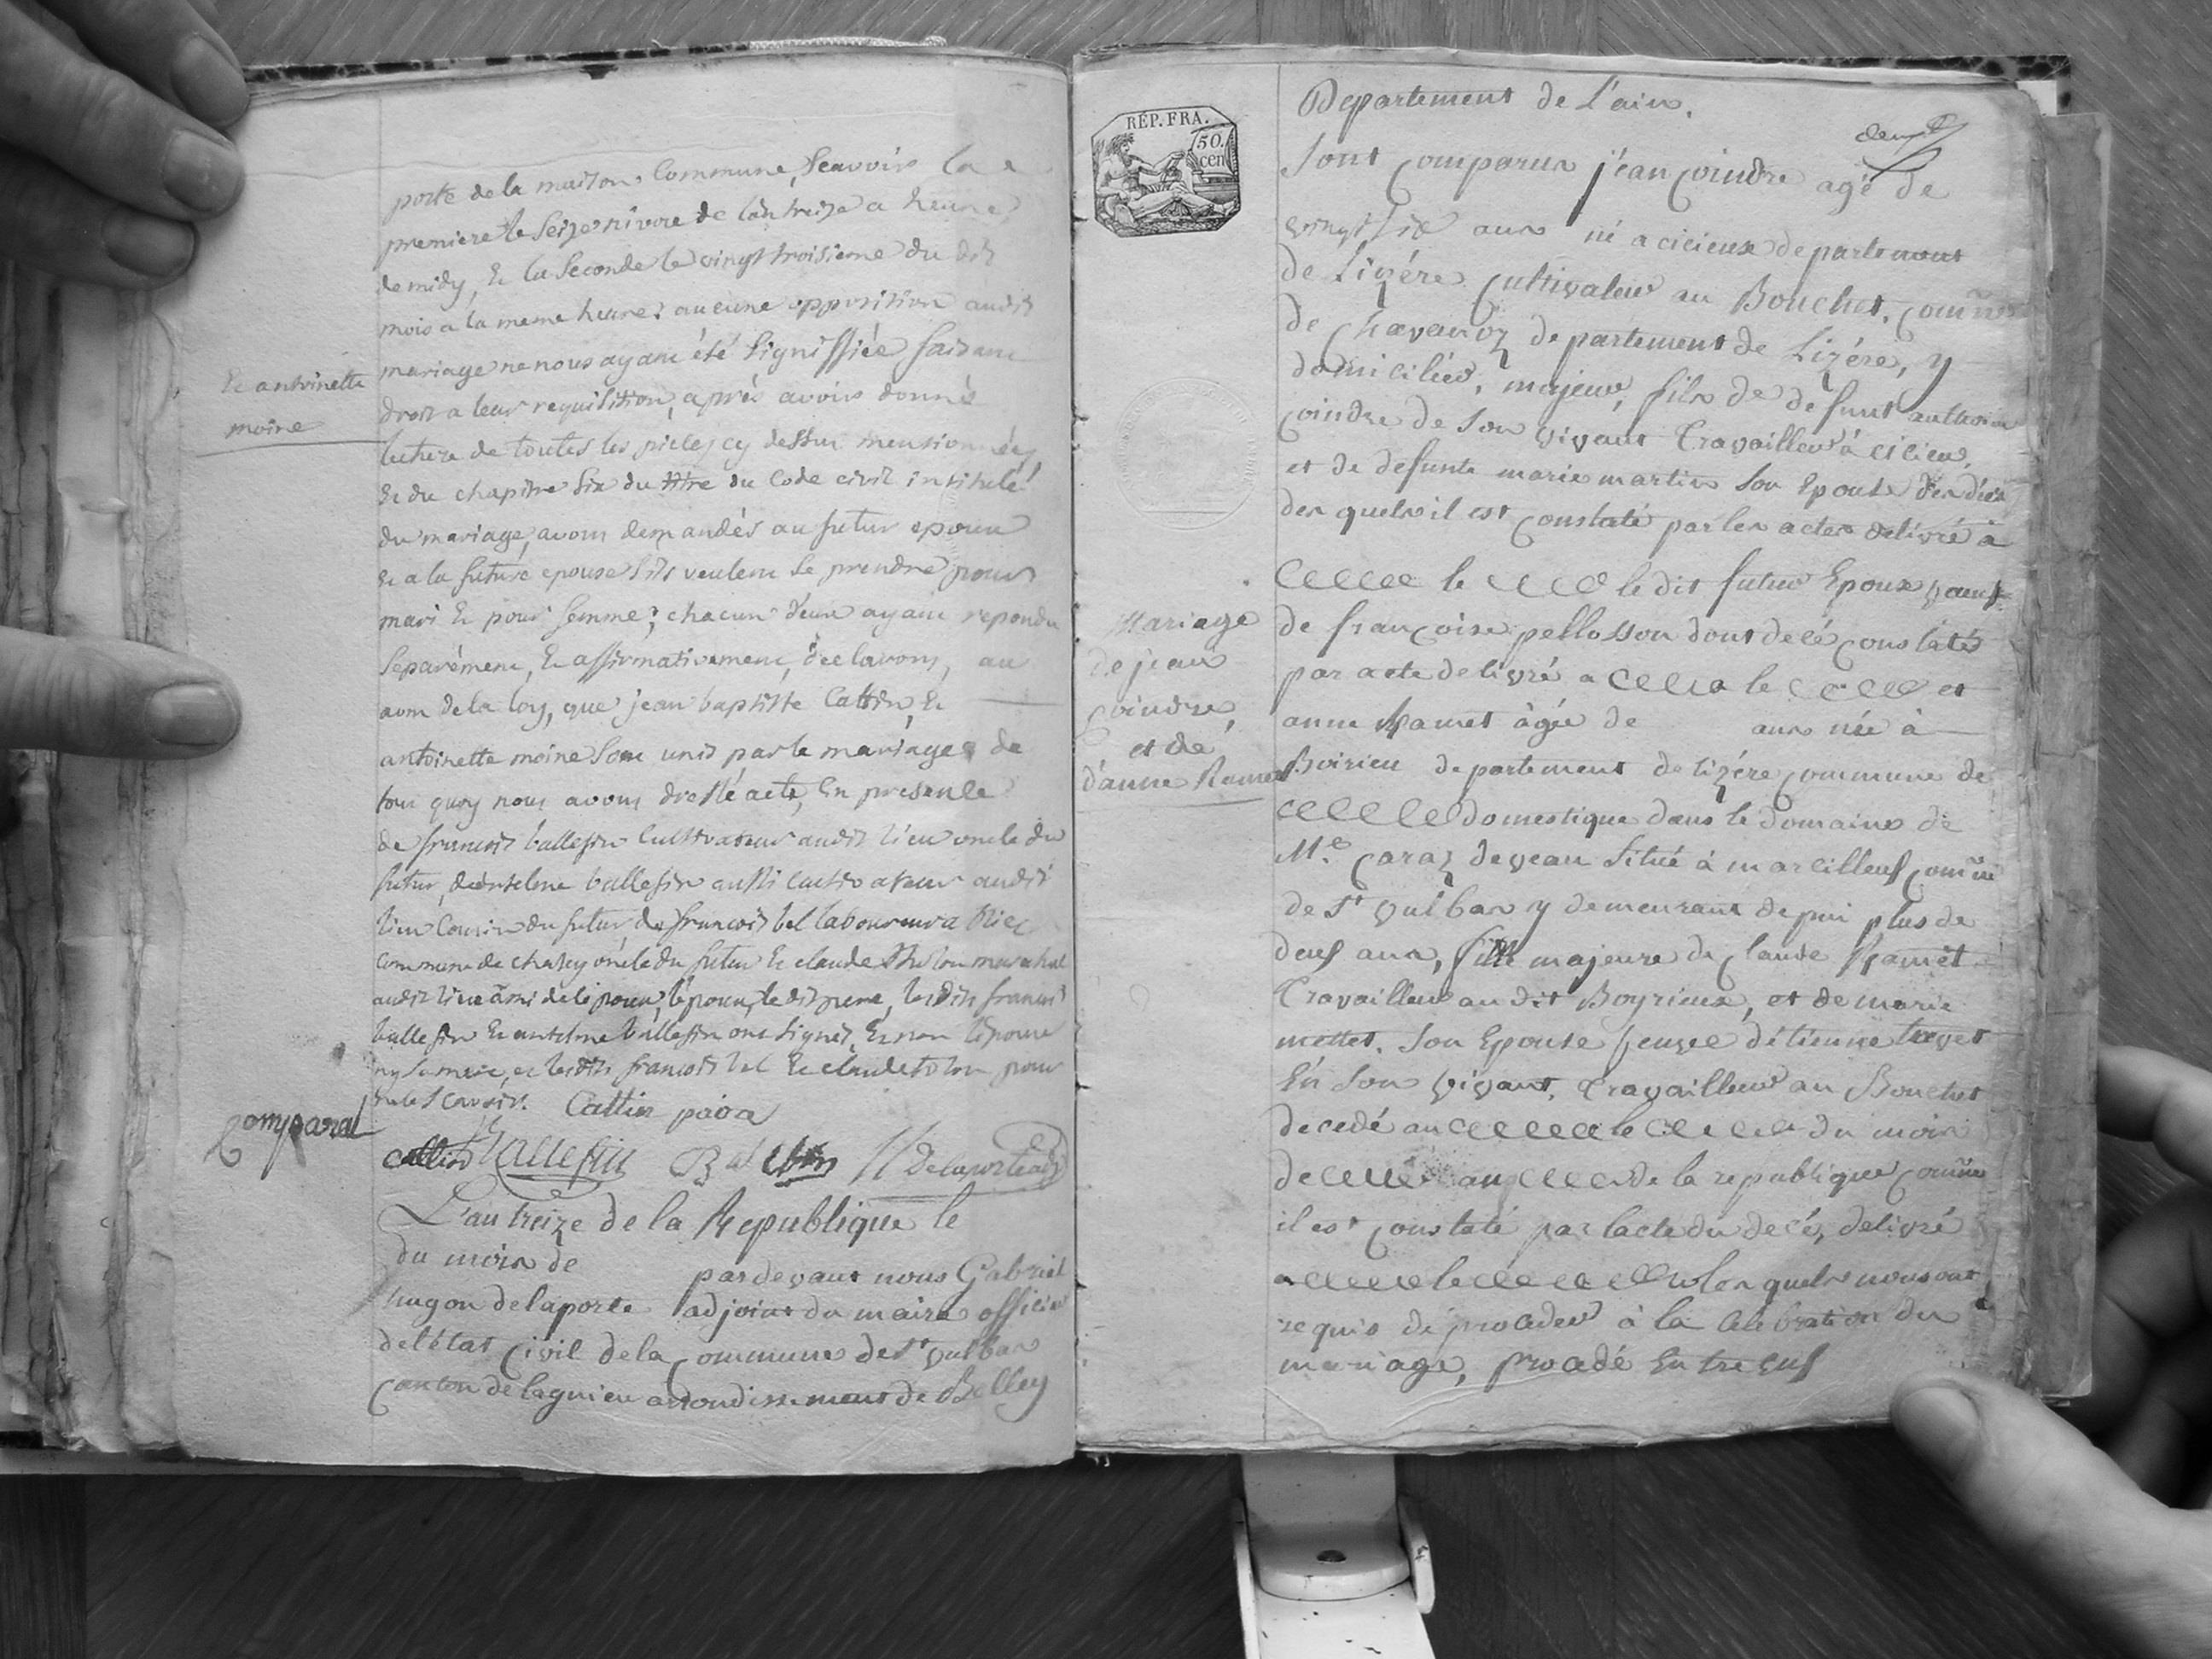 porte de la maison Commune, Scavoir la
premiere le Seize nivose de l'an treize a heure
de midy, & la Seconde le vingt troisieme du dit
mois a la meme heure: aucune opposition audit
mariage ne nous ayant été Signiffiée faisant
droit a leur requisition, aprés avoir donné
lecture de toutes les pieces cy dessus mentionnées
& du chapitre Six du titre du Code civil intitulé
du mariage, avons demandés au futur epoux
& a la future epouse S'ils veulent Se prendre pour
mari & pour femme; chacun d'eux ayant repondu
Separément, & affirmativement, déclarons, au
nom de la loy, que jean baptiste Cattin, &
antoinette moine Sont unis par le mariage de
tout quoy nous avons dressé acte, En presence
de francois ballefin Cultivateur audit lieu oncle du
futur, d'antelme ballefin aussi cultivateur audit
lieu Cousin du futur de francois bel laboureur a
commune de chazey oncle du futur & claude marechal
audit lieu ami de l'epoux, l'epoux, le dit pere, les dits francois
ballefin & antelme ballefin ont Signés, & non l'epouse
ny Sa mere, & les dits francois bel & claude pour
ne le Scavoir. Cattin
cattin ballefin Delaporte adj
L'an treize de la Republique le
du mois de par devant nous Gabriel
hugon delaporte adjoint du maire officier
de l'état Civil de la Commune de St vulbas
Canton de lagnieu arrondissement de Belley
& antoinette
moine
Comparal
RÉP. FRA.
50.
cen
Departement de L'ain.
deux
Sont Comparus jéan Coindre agé de
vingt six ans né a cicieux departement
de Lizére Cultivateur au Bouchet, Comne
de Chavanoz departement de Lizére, y
domicilié, majeur, fils de defunt anthoine
Coindre de Son vivant Travailleur à cicieu,
et de defunte marie martin Son Epouse des décé
des quels il est Constaté par les actes delivré à
le le dit futur Epoux veuf
de françoise pellosson dont decé Constaté
par acte delivré a le et
anne Ramet àgée de ans née à
Boirieu departement de lizére Commune de
domestique dans le domaine de
Mr Caraz deveau Situé à marcilleux Comne
de St vulbas y demeurant depui plus de
deux ans, fille majeure de Claude Ramet
Travailleur au dit Boyrieux, et de marie
mottet. Son Epouse veuve d'étienne
En Son vivant, Travailleur au Bouchet
decedé au le du mois
de an de la republique Comme
il est Constaté par l'acte du decé, delivré
a le les quels nous ont
requis de proceder à la celebration du
mariage, procedé Entre eux
Mariage
de jean
Coindre,
et de
d'anne Ramet